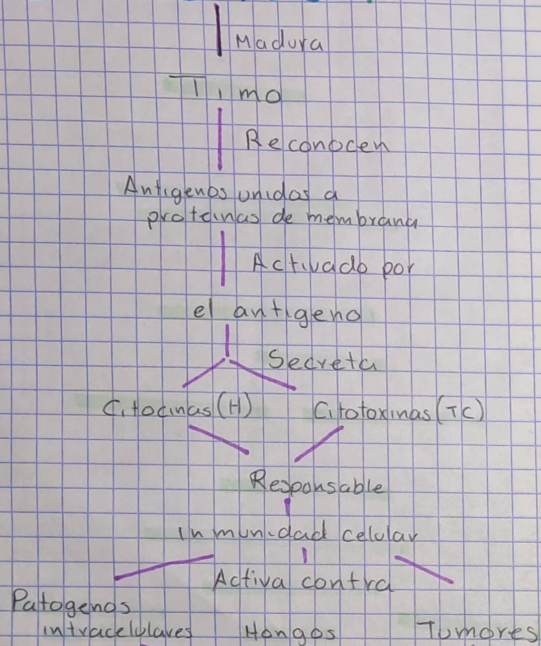 Madura
Timo
Reconocen
Antigenos unidas a
proteinas de membrana
Activado por
el antigeno
Secreta
Citocinas (H) Citotoxinas (TC)
Responsable
inmunidad celular
Activa contra
Patogenos
intracelulares Hongos Tumores